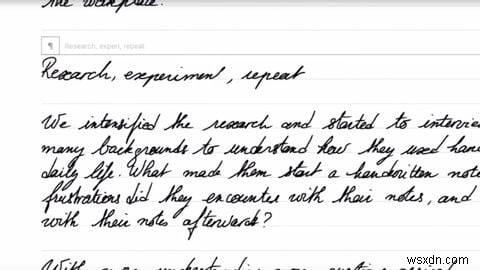 the workplace.
¶ Research, experi, repeat
Research, experiment, repeat
We intensified the research and started to interview
many backgrounds to understand how they used hand
daily life. What made them start a handwritten note
frustrations did they encounter with their notes, and
with their notes afterwards?
With
understanding
wsxdn.com